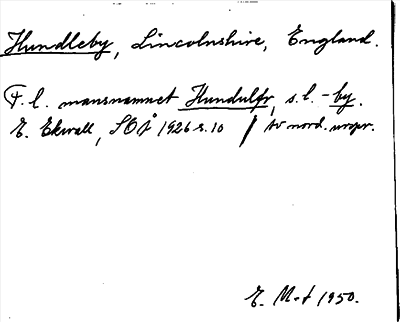 Hundleby, Lincolnshire, England.
F. l. mansnamnet Hundulfr, s. l. -by.
E. Ekwall, SOÅ 1926 s. 10 / av nord. urspr.
E. M-t 1950.